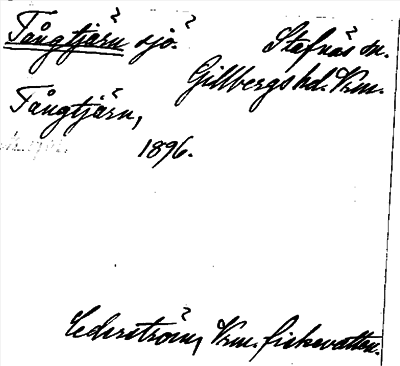 Tångtjärn sjö. Stafnäs sn.
Gillbergs hd. Vrm.
Tångtjärn,
1896.
Cederström, Vrm. fiskevatten.